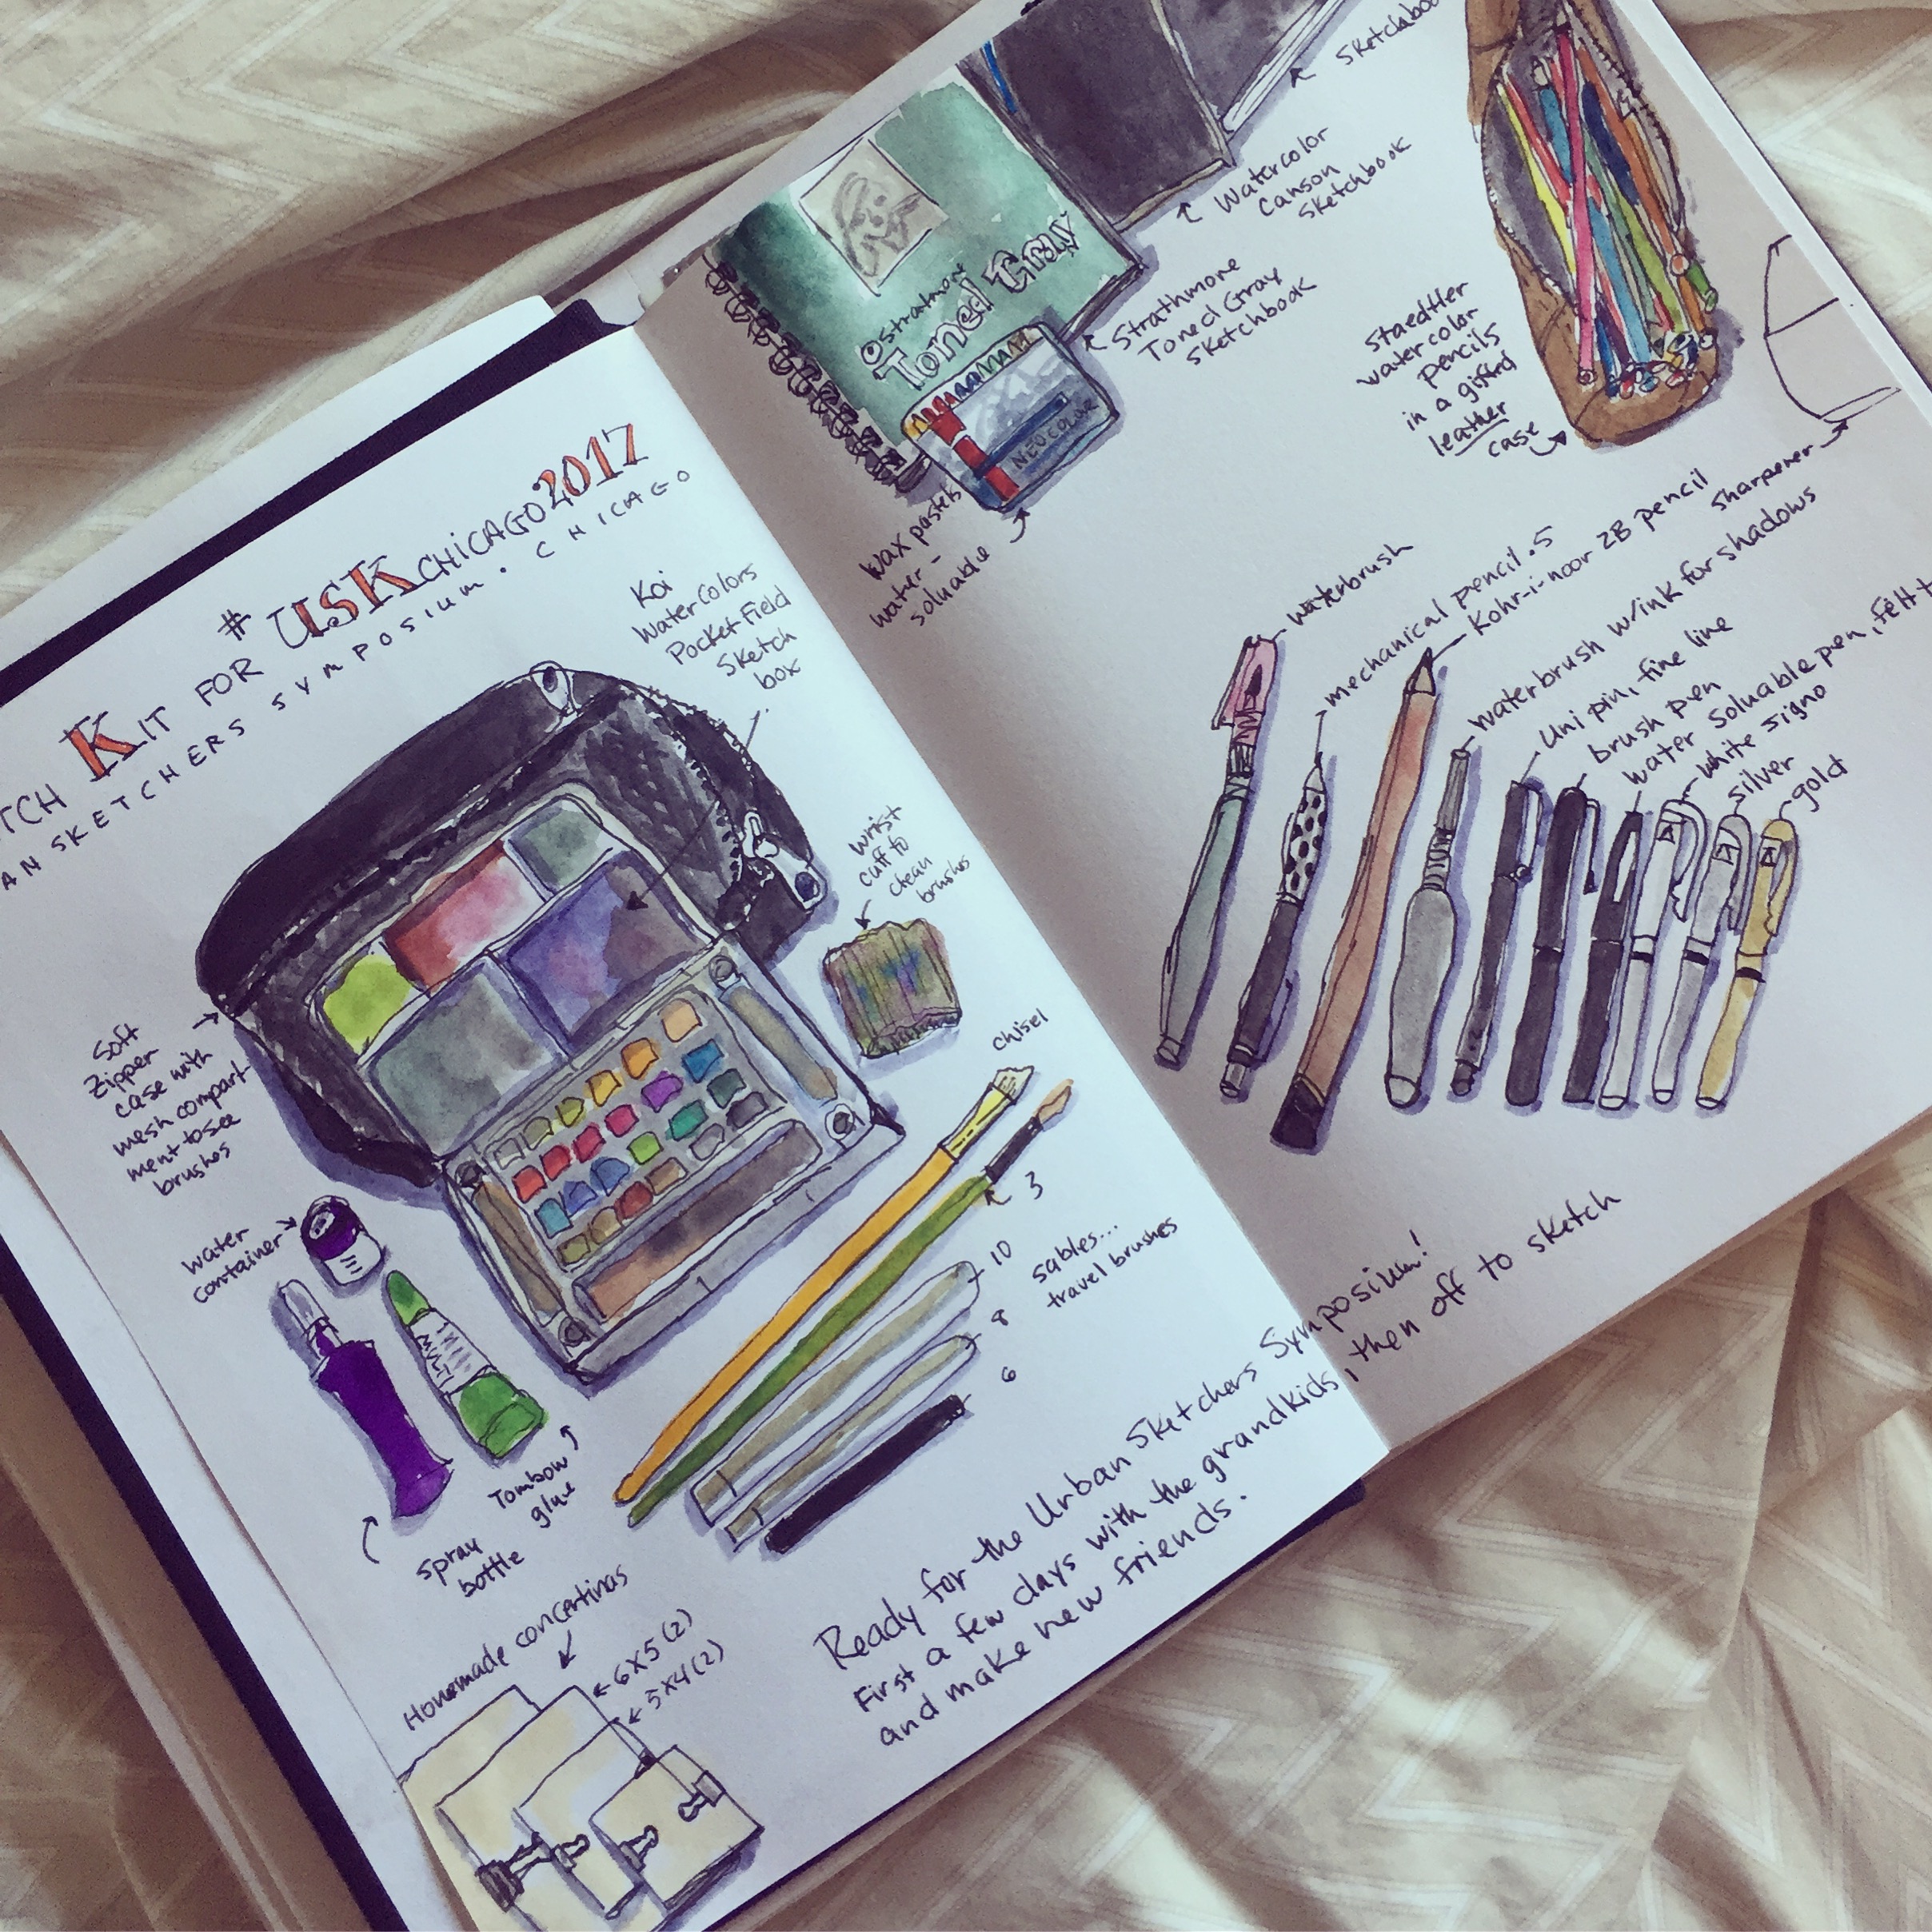 TCH KIT FOR #USKCHICAGO2017
AN SKETCHERS SYMPOSIUM. CHICAGO
Koi
Watercolors
Pocket Field
Sketch
box
wrist
cuff to
clean
brushes
Soft
Zipper
case with
mesh compart-
ment to see
brushes
water
container
MULTI
Tombow
glue
spray
bottle
chisel
3
10
8
6
sables...
travel brushes
Homemade concertinas
6X5 (2)
5X4 (2)
Ready for the Urban Sketchers Symposium!
First a few days with the grandkids, then off to sketch
and make new friends.
Sketchboo
Watercolor
Canson
Sketchbook
Strathmore
Toned Gray
Strathmore
Toned Gray
Sketchbook
NEOCOLOR
Wax pastels
water-
soluable
Staedtler
watercolor
pencils
in a gifted
leather
case
Sharpener
waterbrush
mechanical pencil .5
Kohr-i-noor 2B pencil
Waterbrush w/ink for shadows
Uni pin, fine line
brush pen
water soluable pen, felt t
white signo
silver
gold